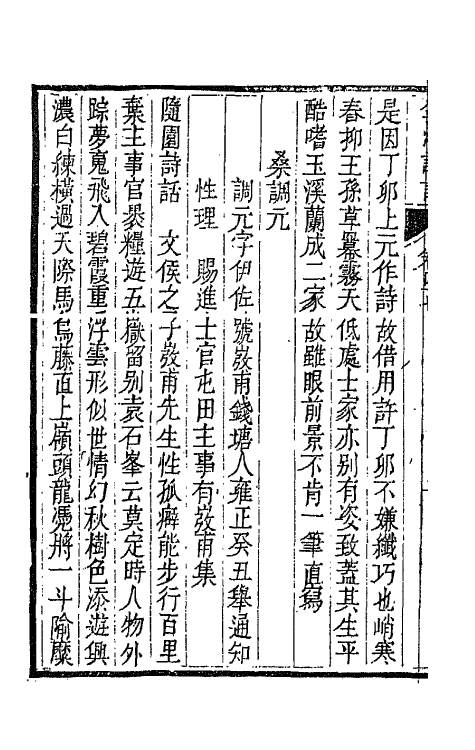 是因丁卯上元作詩故借用許丁卯不嫌纖巧也峭寒
春抑王孫草暴霧天低處士家亦别有姿致蓋其生平
酷嗜玉溪蘭成二家故雖眼前景不肯一筆直寫
桑調元
調元字伊佐號弢甫錢塘人雍正癸丑舉通知
性理賜進士官屯田主事有弢甫集
隨園詩話 文侯之子弢甫先生性孤癖能步行百里
棄主事官褁糧遊五嶽留别袁石峯云莫定時人物外
踪夢䰟飛入碧霞重浮雲形似世情幻秋樹色添遊興
濃白練橫過天際馬烏藤直上嶺頭龍憑將一斗隃麋